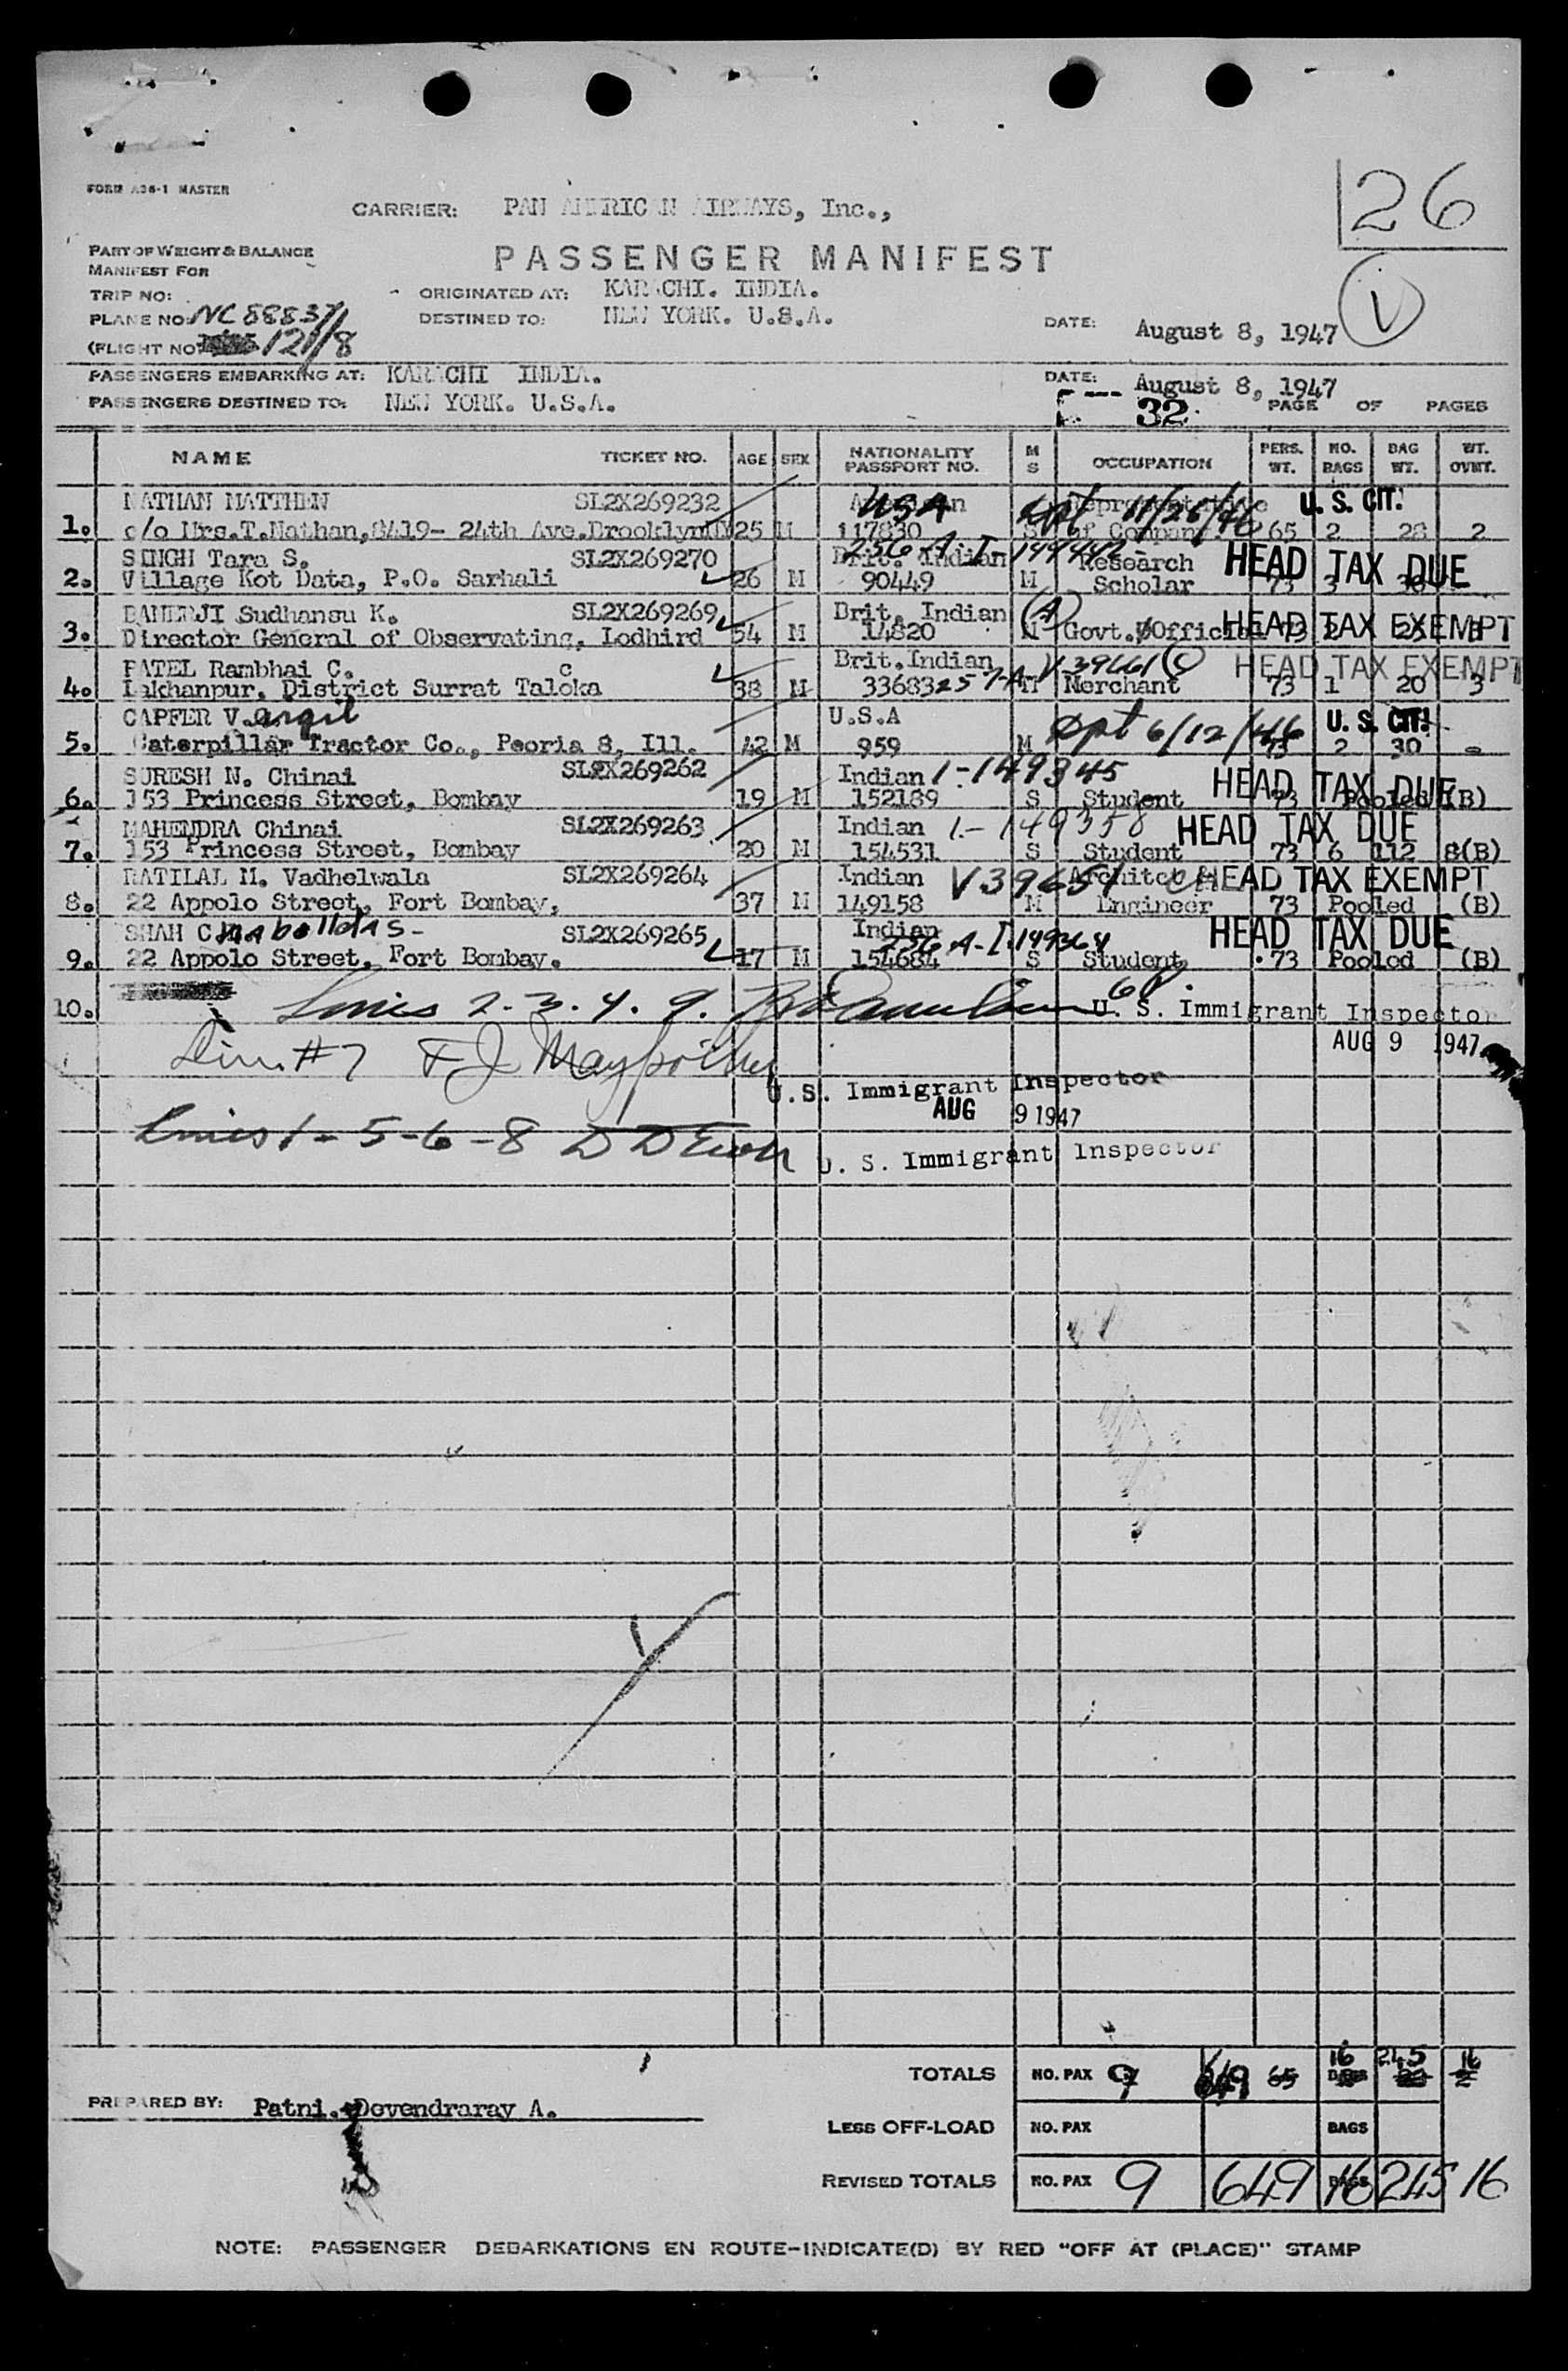 FORM A36-1 MASTER
26
CARRIER: PAN AMERICAN AIRWAYS, Inc.,
PART OF WEIGHT & BALANCE
MANIFEST FOR
PASSENGER MANIFEST
TRIP NO:
ORIGINATED AT: KARACHI. INDIA.
PLANE NO: NC 88837
DESTINED TO: NEW YORK. U.S.A.
DATE: August 8, 1947
V
(FLIGHT NO 121/8
PASSENGERS EMBARKING AT: KARACHI INDIA.
DATE: August 8, 1947
PASSENGERS DESTINED TO: NEW YORK. U.S.A.
32
PAGE OF PAGES
NAME TICKET NO. AGE SEX NATIONALITY PASSPORT NO. M S OCCUPATION PERS. WT. NO. BAGS BAG WT. WT. OVWT.
NATHAN MATTHEW SL2X269232 American USA Dpt 11/26/46 Representative U. S. CIT.
1. c/o Mrs.T.Nathan,8419- 24th Ave.Brooklyn NY 25 M 117830 S of Company 65 2 28 2
SINGH Tara S. SL2X269270 Brit. Indian 256 A-I-149442 Research HEAD TAX DUE
2. Village Kot Data, P.O. Sarhali 26 M 90449 M Scholar 73 3 30
BANERJI Sudhansu K. SL2X269269 Brit. Indian (A) HEAD TAX EXEMPT
3. Director General of Observating, Lodhird 54 M 14820 M Govt. Official 73
PATEL Rambhai C. C Brit.Indian V-39661 (C) HEAD TAX EXEMPT
4. Lakhanpur. District Surrat Taloka 38 M 33683 257-A- M Merchant 73 1 20 3
CAPFER V.argil U.S.A Dpt 6/12/46 U. S. CIT.
5. Caterpillar Tractor Co., Peoria 8, Ill. 42 M 959 M 73 2 30 -
SURESH N. Chinai SL2X269262 Indian 1-149345 HEAD TAX DUE
6. 153 Princess Street, Bombay 19 M 152189 S Student 73 Pooled (B)
MAHENDRA Chinai SL2X269263 Indian 1-149358 HEAD TAX DUE
7. 153 Princess Street, Bombay 20 M 154531 S Student 73 6 112 8(B)
RATILAL M. Vadhelwala SL2X269264 Indian V39651 Architct HEAD TAX EXEMPT
8. 22 Appolo Street, Fort Bombay, 37 M 149158 M Engineer 73 Pooled (B)
SHAH C SL2X269265 Indian 256 A-I-149364 HEAD TAX DUE
9. 22 Appolo Street, Fort Bombay. 17 M 154684 S Student 73 Pooled (B)
10. Lines 2-3-4-9. U. S. Immigrant Inspector
AUG 9 1947
Line #7
U.S. Immigrant Inspector
AUG 9 1947
Lines 1-5-6-8
U. S. Immigrant Inspector
TOTALS NO. PAX 9 649 65 16 BAGS 245 16
PREPARED BY: Patni. Devendraray A.
LESS OFF-LOAD NO. PAX BAGS
REVISED TOTALS NO. PAX 9 649 16 BAGS 245 16
NOTE: PASSENGER DEBARKATIONS EN ROUTE-INDICATE(D) BY RED "OFF AT (PLACE)" STAMP